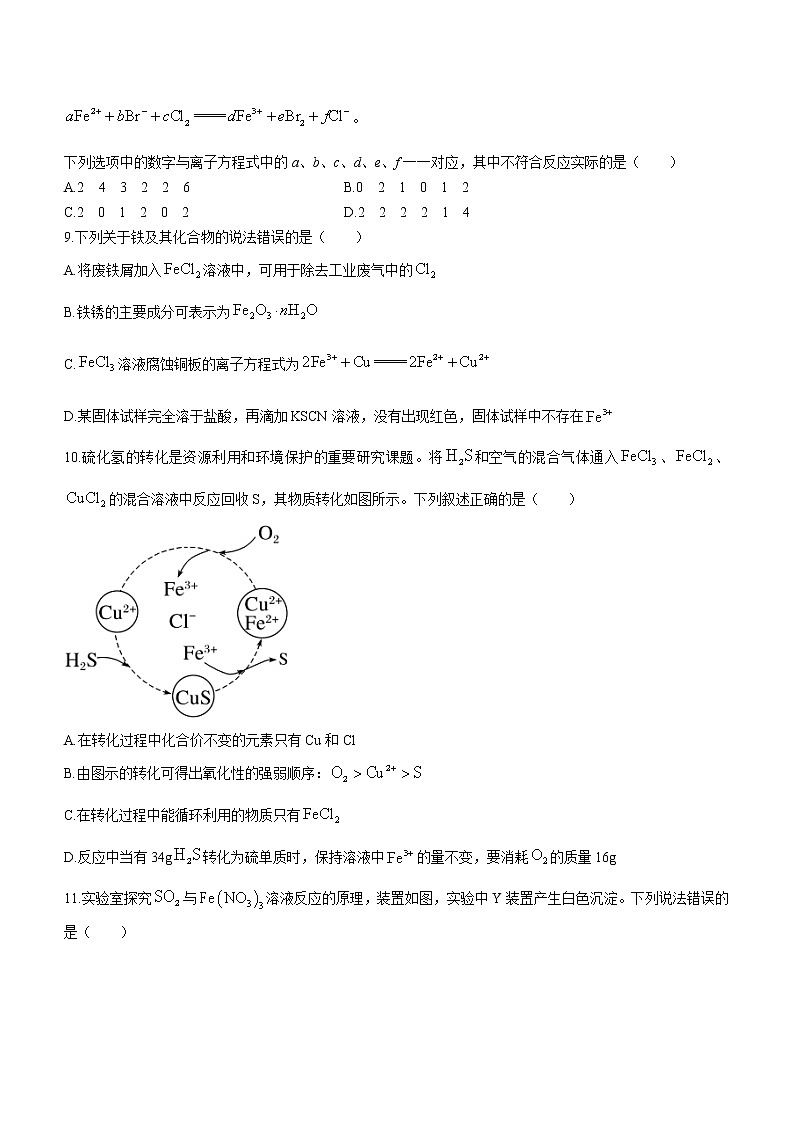 aFe²⁺+bBr⁻+cCl₂══dFe³⁺+eBr₂+fCl⁻。
下列选项中的数字与离子方程式中的a、b、c、d、e、f一一对应，其中不符合反应实际的是（　　）
A.2 4 3 2 2 6　　B.0 2 1 0 1 2
C.2 0 1 2 0 2　　D.2 2 2 2 1 4
9.下列关于铁及其化合物的说法错误的是（　　）
A.将废铁屑加入FeCl₂溶液中，可用于除去工业废气中的Cl₂
B.铁锈的主要成分可表示为Fe₂O₃·nH₂O
C.FeCl₃溶液腐蚀铜板的离子方程式为2Fe³⁺+Cu══2Fe²⁺+Cu²⁺
D.某固体试样完全溶于盐酸，再滴加KSCN溶液，没有出现红色，固体试样中不存在Fe³⁺
10.硫化氢的转化是资源利用和环境保护的重要研究课题。将H₂S和空气的混合气体通入FeCl₃、FeCl₂、
CuCl₂的混合溶液中反应回收S，其物质转化如图所示。下列叙述正确的是（　　）
O₂
Fe³⁺
Cu²⁺
Cl⁻
Cu²⁺
Fe²⁺
H₂S
Fe³⁺
S
CuS
A.在转化过程中化合价不变的元素只有Cu和Cl
B.由图示的转化可得出氧化性的强弱顺序：O₂>Cu²⁺>S
C.在转化过程中能循环利用的物质只有FeCl₂
D.反应中当有34gH₂S转化为硫单质时，保持溶液中Fe³⁺的量不变，要消耗O₂的质量16g
11.实验室探究SO₂与Fe(NO₃)₃溶液反应的原理，装置如图，实验中Y装置产生白色沉淀。下列说法错误的
是（　　）